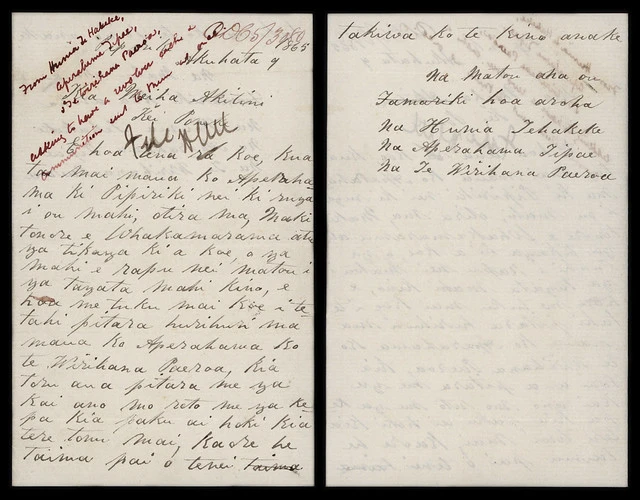 From Hunia Te Hakeke,
Aperahama Tipae,
& Te Wirihana Paeroa,
asking to have a revolver each &
ammunition sent to them
1865
Akuhata 9
Kia Meiha
Kei
E hoa tena ra koe, kua
tae mai maua ko Aperaha
ma ki Pipiriki nei ki runga
i ou mahi, otira ma Maki
tonore e whakamarama atu
nga tikanga ki a koe, o nga
mahi e rapu nei matou i
nga tangata mahi kino, e
hoa me tuku mai koe i te
tahi pitara hurihuri ma
maua ko Aperahama ko
te Wirihana Paeroa, kia
toru ana pitara me nga
kai ano mo roto me nga ke
pa kia paku ai hoki kia
tere tonu mai, kaore he
taima pai o tenei taima
takiwa ko te kino anake
Na Matou ana ou
Tamariki hoa aroha
Na Hunia Tehakeke
Na Aperahama Tipae
Na Te Wirihana Paeroa